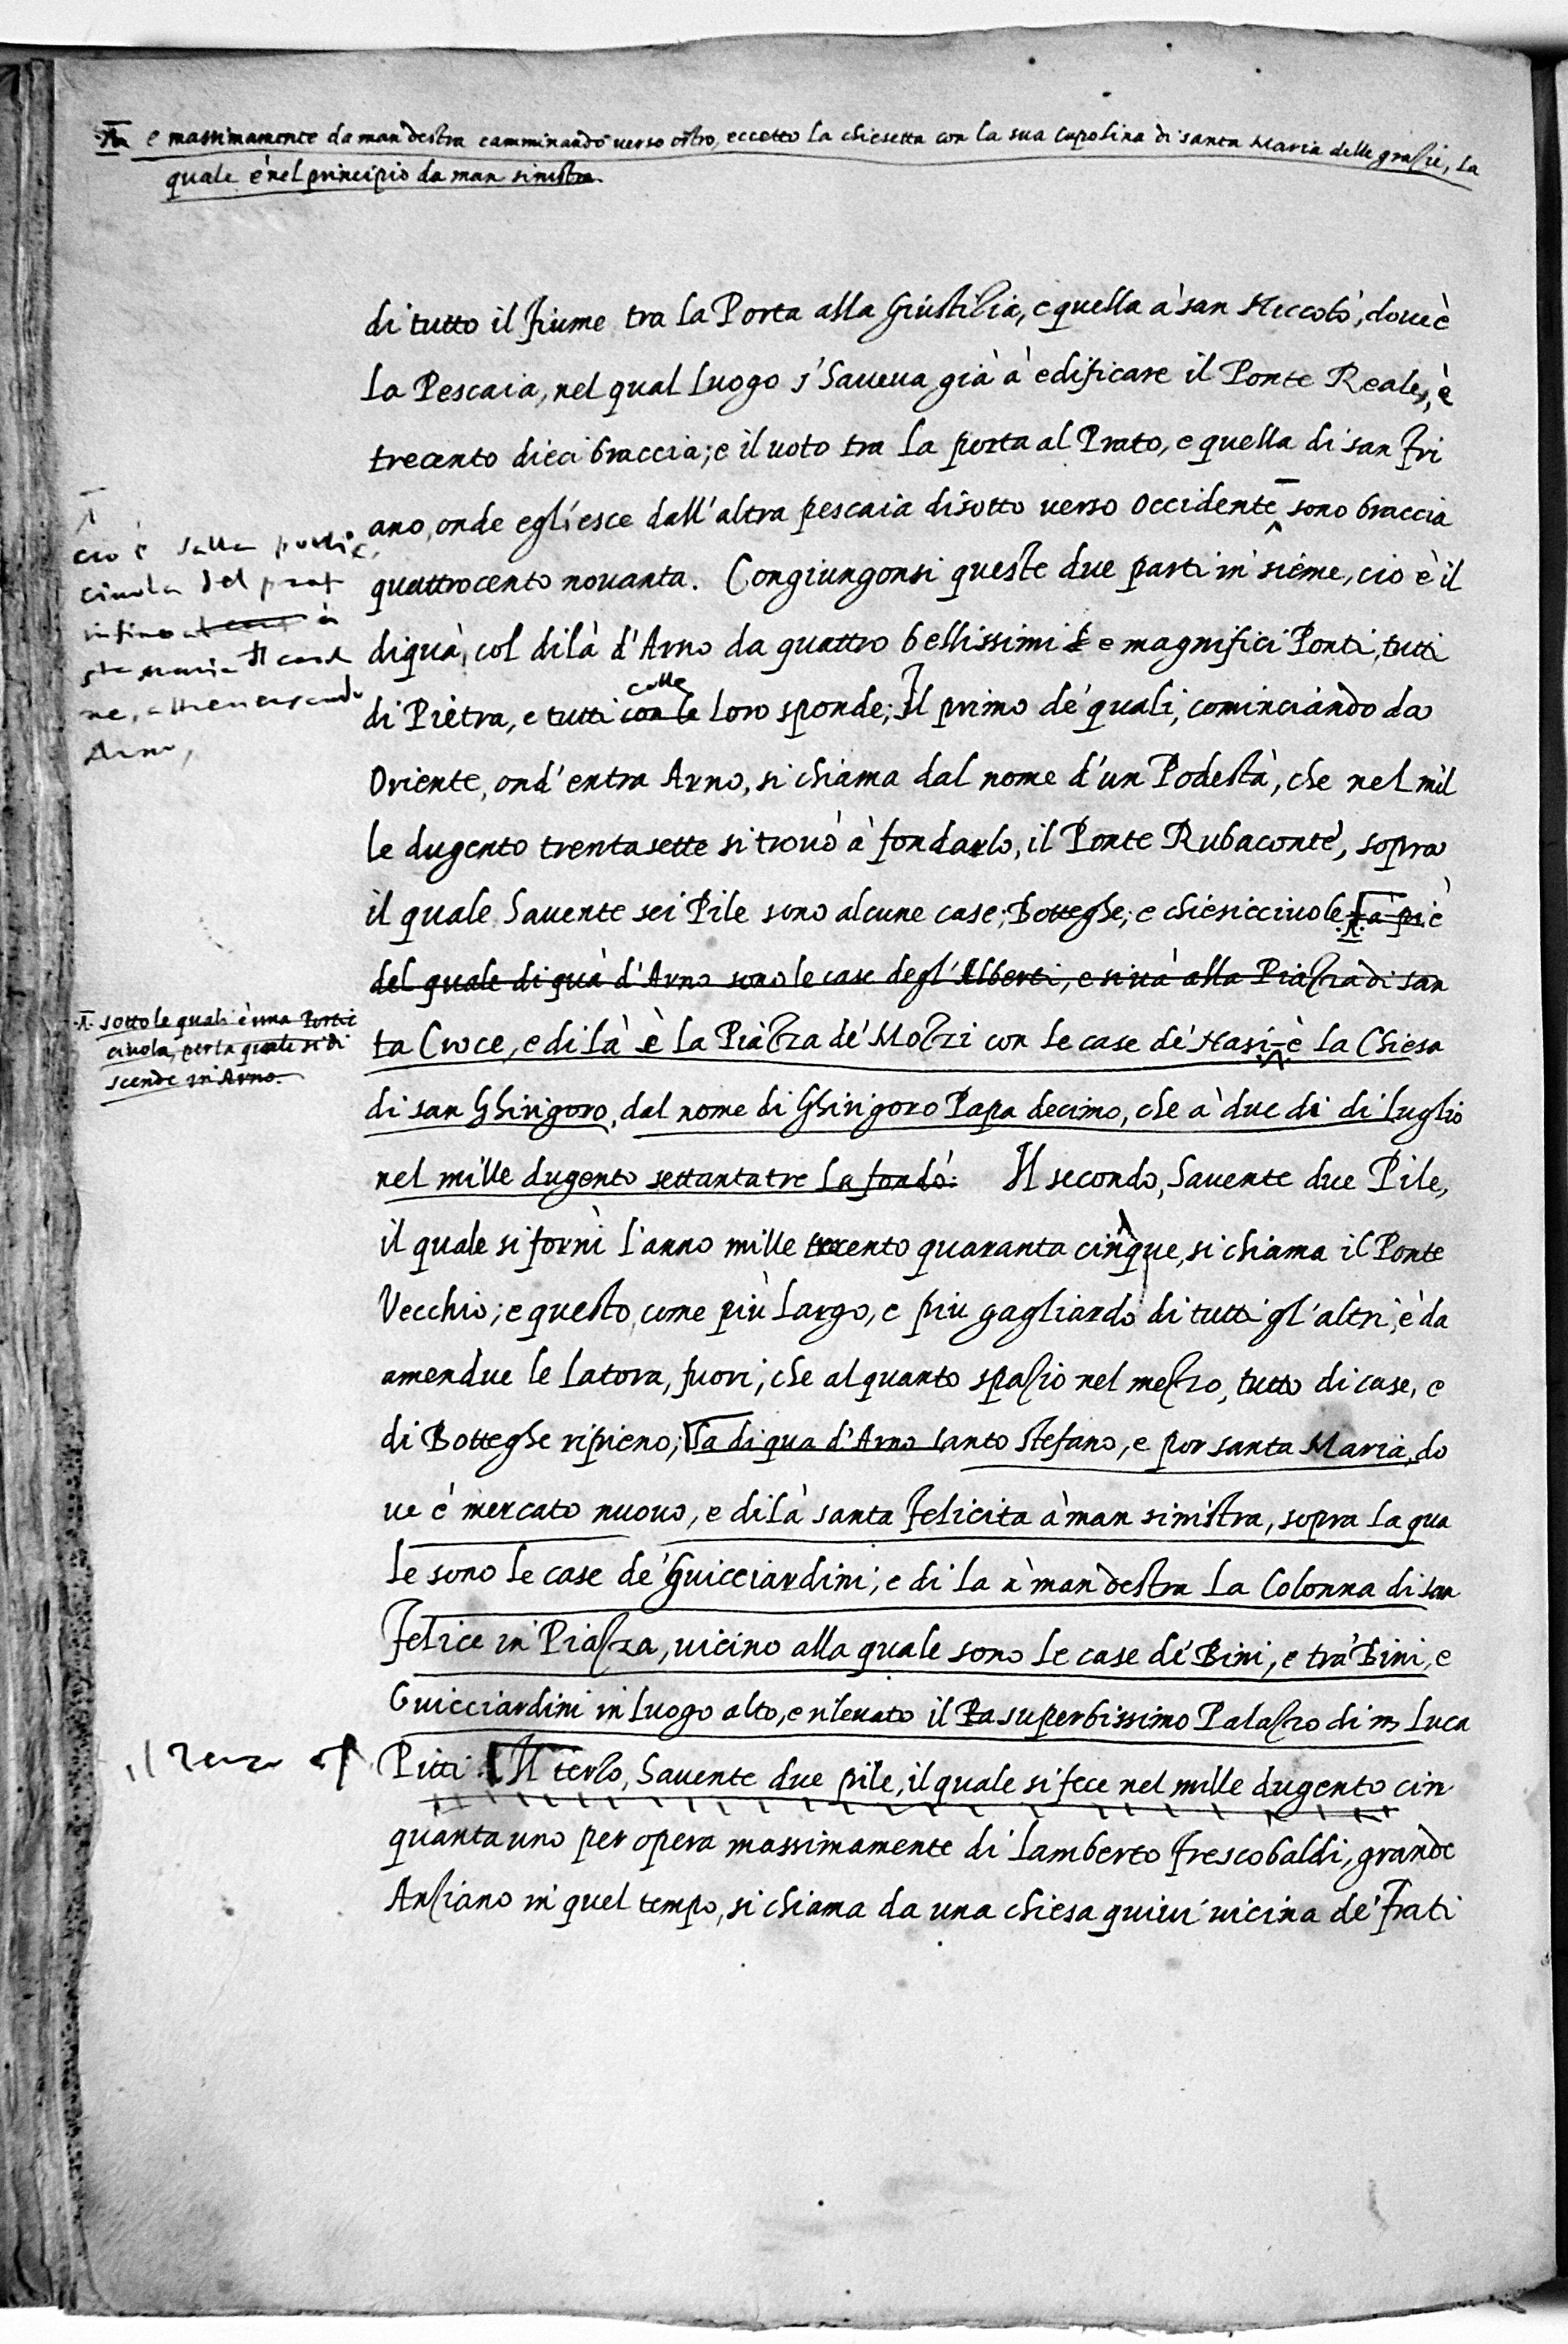 e massimamente da man destra camminando uerso ostro, eccetto la chiesetta con la sua cupolina di santa Maria delle grazie, la
quale è nel principio da man sinistra.
di tutto il fiume tra la Porta alla Giustizia, e quella à san Niccolò, dou'è
la Pescaia, nel qual luogo s'haueua già à edificare il Ponte Reale, è
trecento dieci braccia; e il uoto tra la porta al Prato, e quella di san Fri
ano, onde egli esce dall'altra pescaia disotto uerso Occidente sono braccia
quattrocento nouanta. Congiungonsi queste due parti in sieme, cio è il
diquà, col dilà d'Arno da quattro bellissimi e magnifici Ponti, tutti
di Pietra, e tutti con le colle loro sponde; Il primo de' quali, cominciando da
Oriente, ond'entra Arno, si chiama dal nome d'un Podestà, che nel mil
le dugento trentasette si trouò à fondarlo, il Ponte Rubaconte, sopra
il quale hauente sei Pile sono alcune case; Botteghe, e chiesicciuole; à piè
del quale di quà d'Arno sono le case degl'Alberti, e si uà alla Piazza di san
ta Croce, e di là è la Piazza de' Mozzi con le case de' Nasi, è la Chiesa
di san Ghirigoro, dal nome di Ghirigoro Papa decimo, che à due di di luglio
nel mille dugento settantatre la fondò. Il secondo, hauente due Pile,
il quale si fornì l'anno mille trecento quaranta cinque, si chiama il Ponte
Vecchio; e questo, come più largo, e piu gagliardo di tutti gl'altri, è da
amendue le latora, fuori, che alquanto spazio nel mezzo, tutto di case, e
di Botteghe ripieno; ha di qua d'Arno santo Stefano, e por santa Maria, do
ue è mercato nuouo, e dilà santa Felicita à man sinistra, sopra la qua
le sono le case de' Guicciardini; e di la à man destra la Colonna di san
Felice in Piazza, uicino alla quale sono le case de' Bini, e tra' Bini, e
Guicciardini in luogo alto, e rileuato il superbissimo Palazzo di m. Luca
Pitti. Il terzo, hauente due pile, il quale si fece nel mille dugento cin
quanta uno per opera massimamente di Lamberto Frescobaldi, grande
Anziano in quel tempo, si chiama da una chiesa quiui uicina de' Frati
cio è dalla portic
ciuola del prat
infino al à
sta maria
ne, attrauersando
Arno,
sotto le quali è una Portic
ciuola, per la quale si di
scende in Arno.
il terzo